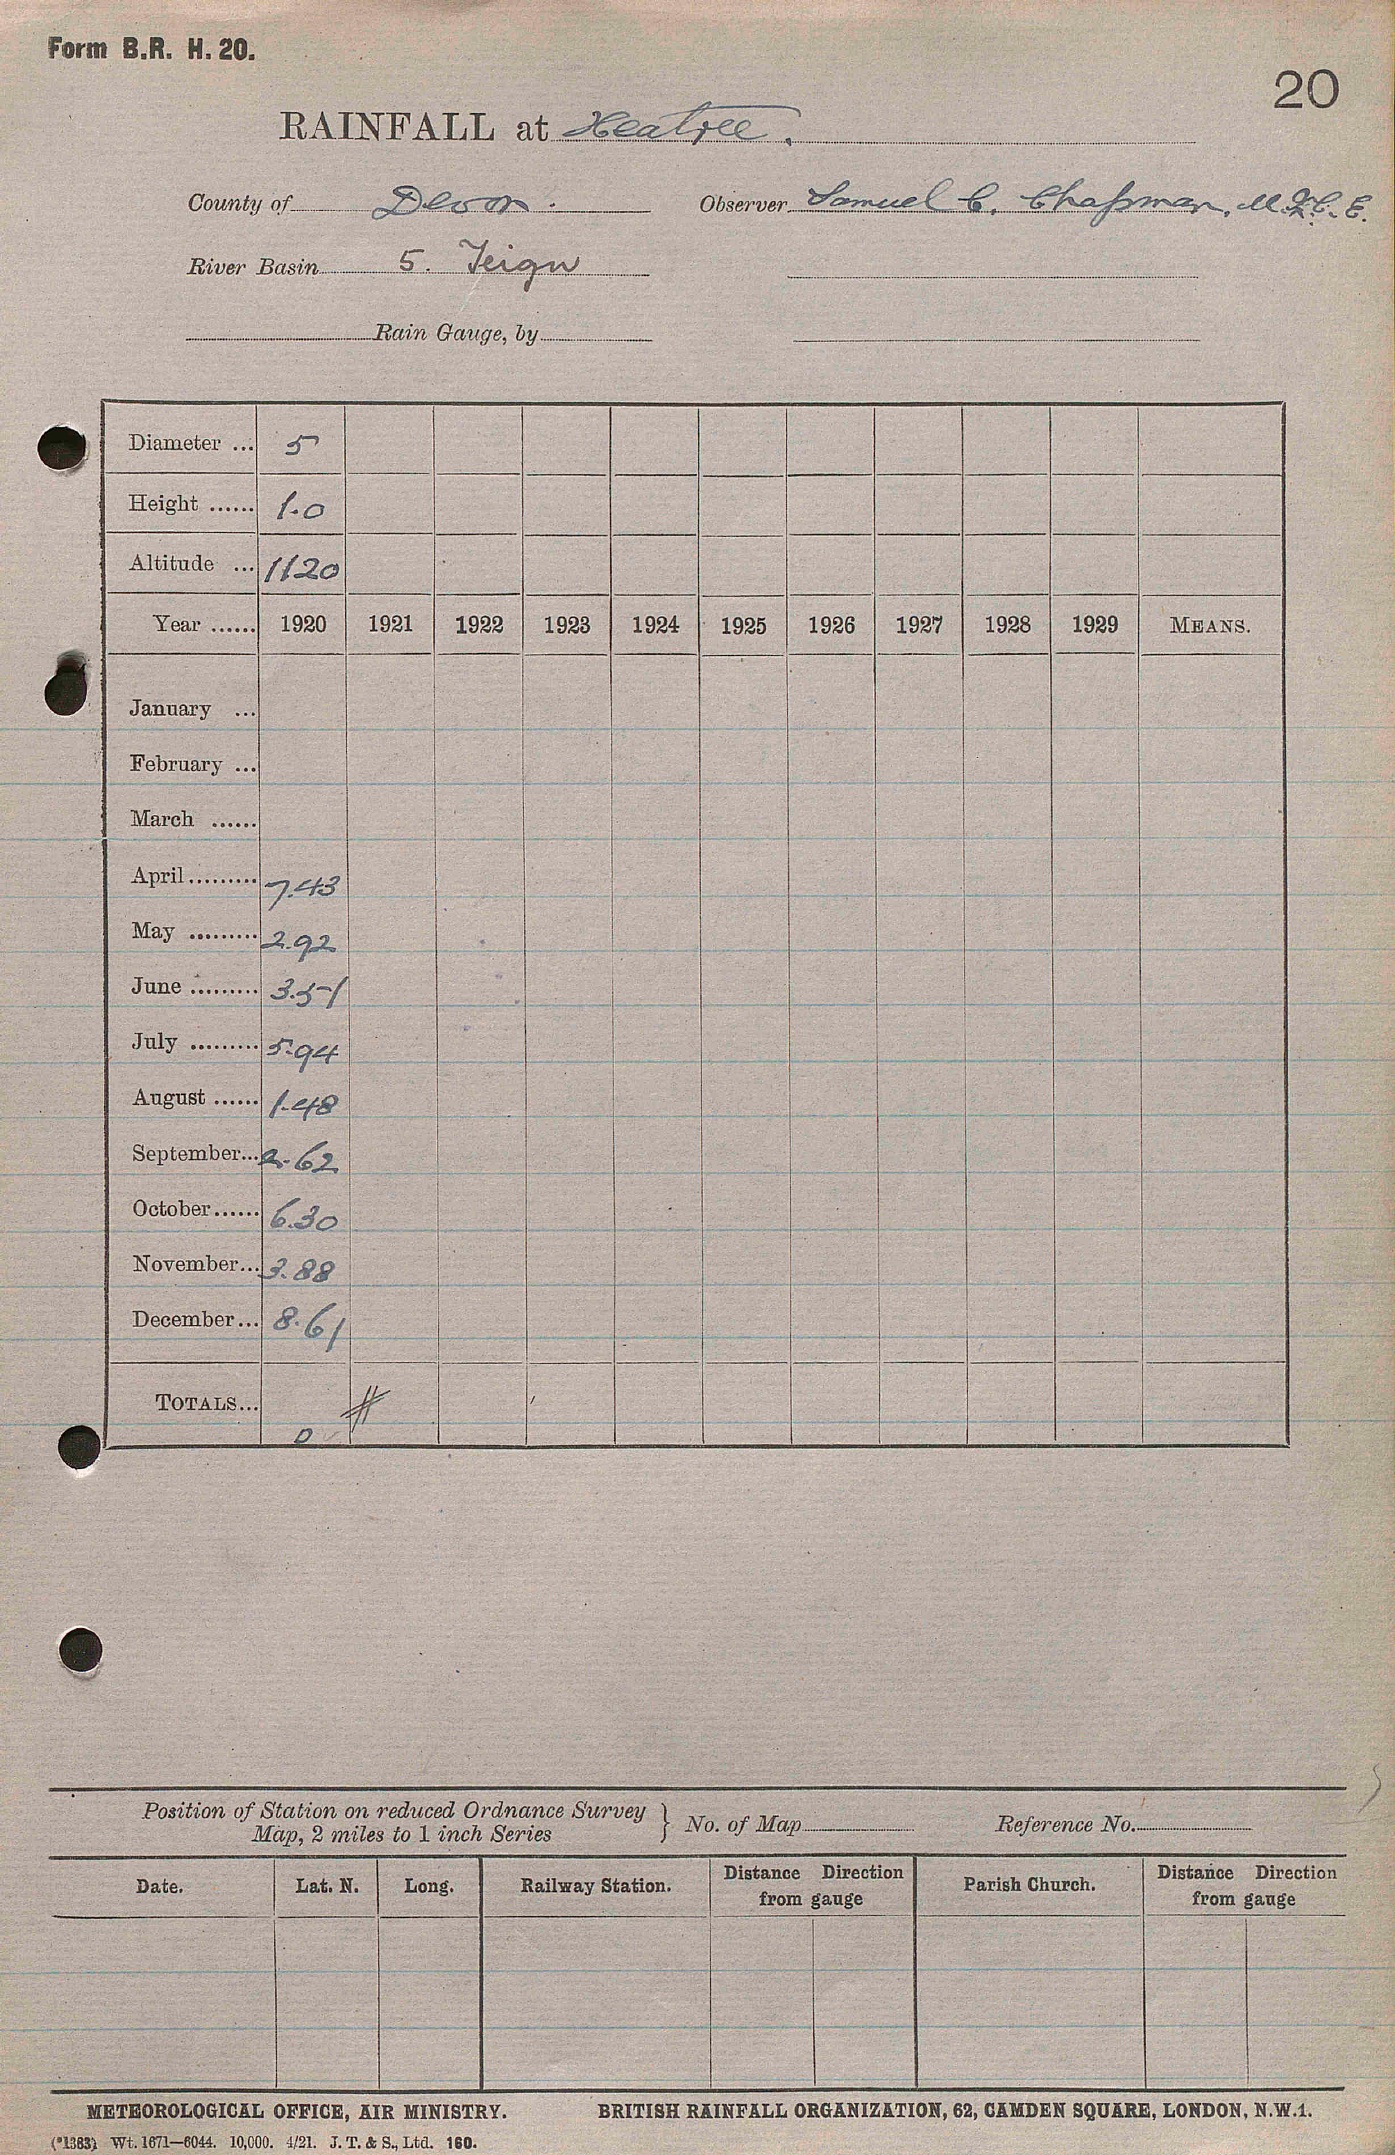 Form B.R. H. 20.
20
RAINFALL at Heatree.
County of Devon. Observer Samuel C. Chapman, M.I.C.E.
River Basin 5. Teign
Rain Gauge, by
Diameter ... 5
Height ...... 1.0
Altitude ... 1120
Year ...... 1920 1921 1922 1923 1924 1925 1926 1927 1928 1929 MEANS.
January ...
February ...
March ......
April ......... 7.43
May ......... 2.92
June ......... 3.51
July ......... 5.94
August ...... 1.48
September... 2.62
October...... 6.30
November... 3.88
December... 8.61
TOTALS...
D
Position of Station on reduced Ordnance Survey
Map, 2 miles to 1 inch Series } No. of Map Reference No.
Date. Lat. N. Long. Railway Station. Distance Direction from gauge Parish Church. Distance Direction from gauge
METEOROLOGICAL OFFICE, AIR MINISTRY. BRITISH RAINFALL ORGANIZATION, 62, CAMDEN SQUARE, LONDON, N.W.1.
(*1383) Wt. 1671—6044. 10,000. 4/21. J. T. & S., Ltd. 160.